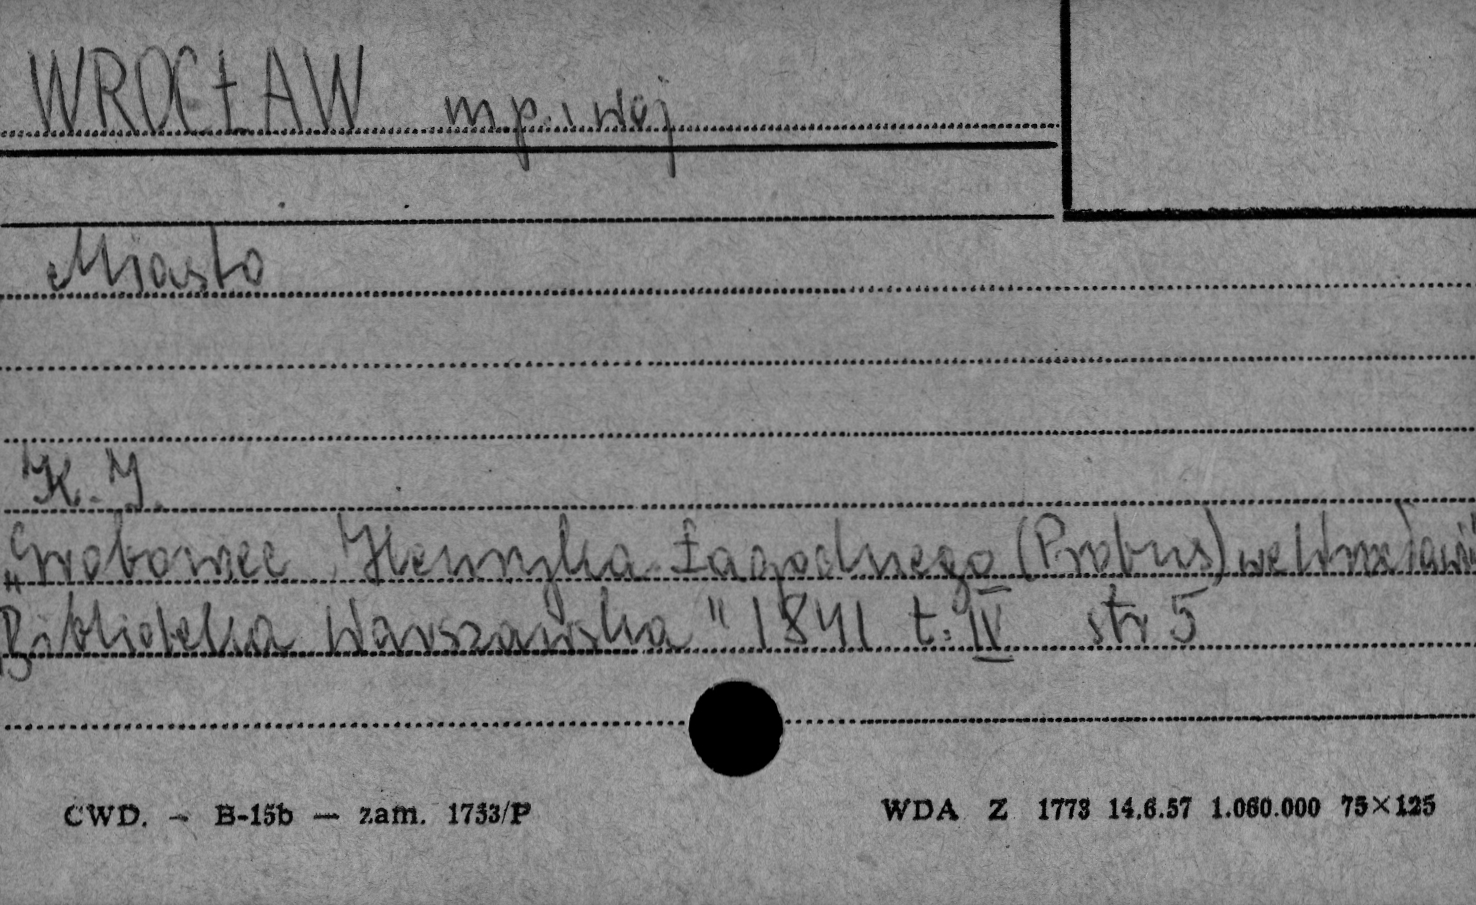 WROCŁAW m.p. i woj
Miasto
K. J.
„Grobowiec Henryka Łagodnego (Probus) we Wrocławiu"
„Biblioteka Warszawska" 1841 t. IV str 5
CWD. — B-15b — zam. 1753/P
WDA Z 1773 14.6.57 1.060.000 75×125